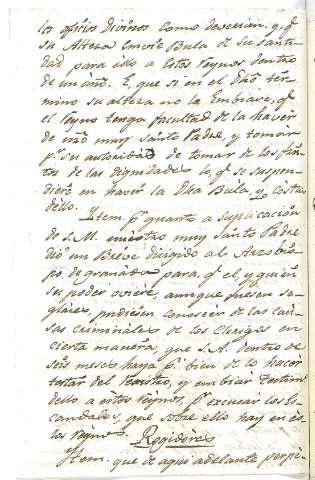 los oficios Divinos como deverian, y q.e
su Alteza Envie Bula de su santi-
dad para ello a Estos Reynos dentro
de un año. E, que si en el Dho ter-
mino su alteza no la Embiare, q.e
el Reyno tenga facultad de la haver
de nro muy Santo Padre, y tomar
p.r su autoridad de tomar de los fru-
tos de las dignidades lo q.e se suspen-
diere en haver la Dha Bula y Costas
dello.
Ytem p.r quanto a suplicacion
de S. M. nuestro muy Santo Padre
dio un Breve dirigido al Arzobis-
po de granada para q.e el, y quien
su poder oviere, aunque fuesen se-
glares, pudiesen conoscer de las cau-
sas Criminales de los Clerigos en
cierta manera, que S. A. dentro de
seis meses haya p.r bien de lo hacer
testar del Registro, y embiar testim.o
dello a estos Reynos, p.r escusar los Es-
candalos, que sobre ello hay en es-
tos Reynos.
Regidores
Ytem. que de aqui adelante perpe-